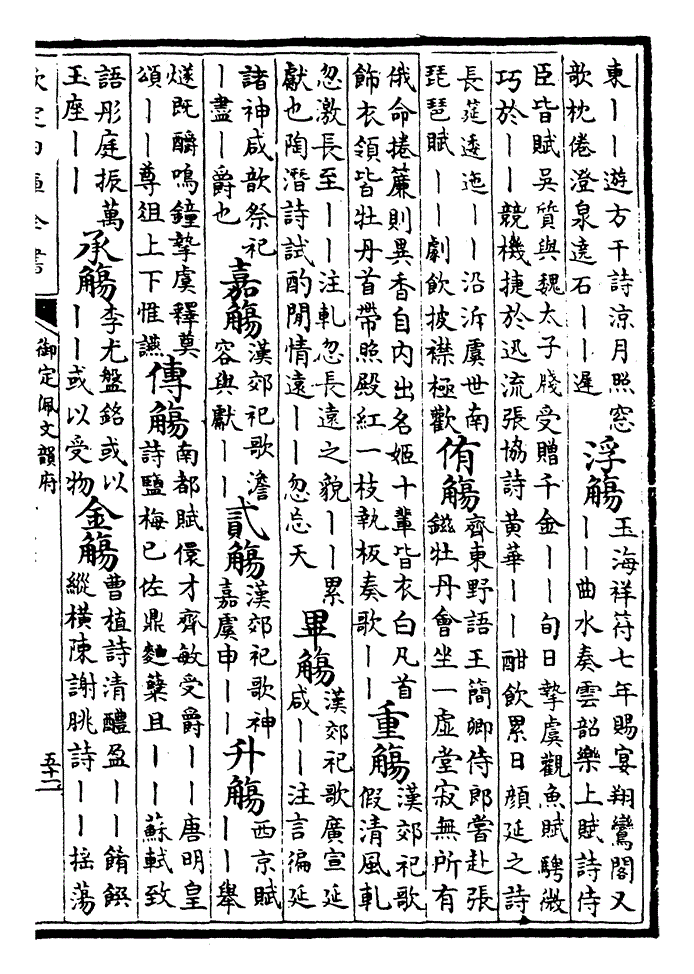 東丨丨遊方干詩涼月照窓
歌枕倦澄泉遠石丨丨遲
浮觴
玉海祥符七年賜宴翔鸞閣又
丨丨曲水奏雲韶樂上賦詩侍
臣皆賦吳質與魏太子牋受贈千金丨丨旬日摯虞觀魚賦騁微
巧於丨丨競機捷於迅流張協詩黄華丨丨酣飲累日顔延之詩
長莚逶迤丨丨沿泝虞世南
琵琶賦丨丨劇飲披襟極歡
侑觴
齊東野語王簡卿侍郎嘗赴張
鎡牡丹會坐一虚堂寂無所有
俄命捲簾則異香自内出名姬十輩皆衣白凡首
飾衣領皆牡丹首帶照殿紅一枝執板奏歌丨丨
重觴
漢郊祀歌
假清風軋
忽激長至丨丨注軋忽長遠之貌丨丨累
獻也陶潛詩試酌閒情遠丨丨忽忘天
畢觴
漢郊祀歌廣宣延
咸丨丨注言徧延
諸神咸歆祭祀
丨盡丨爵也
嘉觴
漢郊祀歌澹
容與獻丨丨
貳觴
漢郊祀歌神
嘉虞申丨丨
升觴
西京賦
丨丨舉
燧既釂鳴鐘摯虞釋奠
頌丨丨尊俎上下惟讌
傳觴
南都賦儇才齊敏受爵丨丨唐明皇
詩鹽梅已佐鼎麯糵且丨丨蘇軾致
語彤庭振萬
玉座丨丨
承觴
李尤盤銘或以
丨丨或以受物
金觴
曹植詩清醴盈丨丨餚饌
縱橫陳謝朓詩丨丨搖蕩
欽定四庫全書
御定佩文韻府
五十二